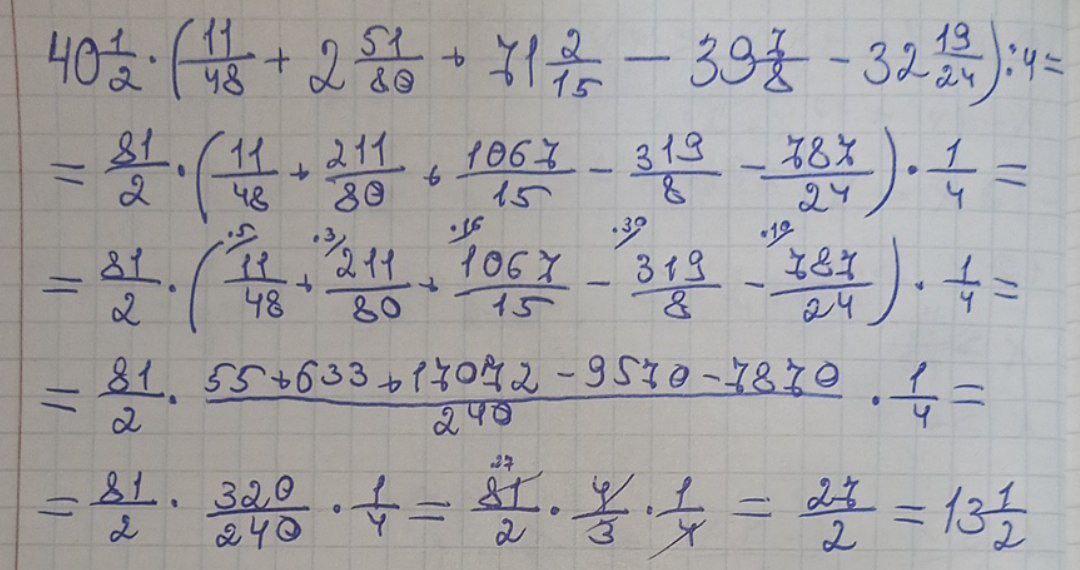 40 1/2 · (11/48 + 2 51/80 + 71 2/15 − 39 7/8 − 32 19/24) : 4 =
= 81/2 · (11/48 + 211/80 + 1067/15 − 319/8 − 787/24) · 1/4 =
·5 ·3 ·16 ·30 ·10
= 81/2 · (11/48 + 211/80 + 1067/15 − 319/8 − 787/24) · 1/4 =
= 81/2 · (55 + 633 + 17072 − 9570 − 7870)/240 · 1/4 =
27
= 81/2 · 320/240 · 1/4 = 81/2 · 4/3 · 1/4 = 27/2 = 13 1/2